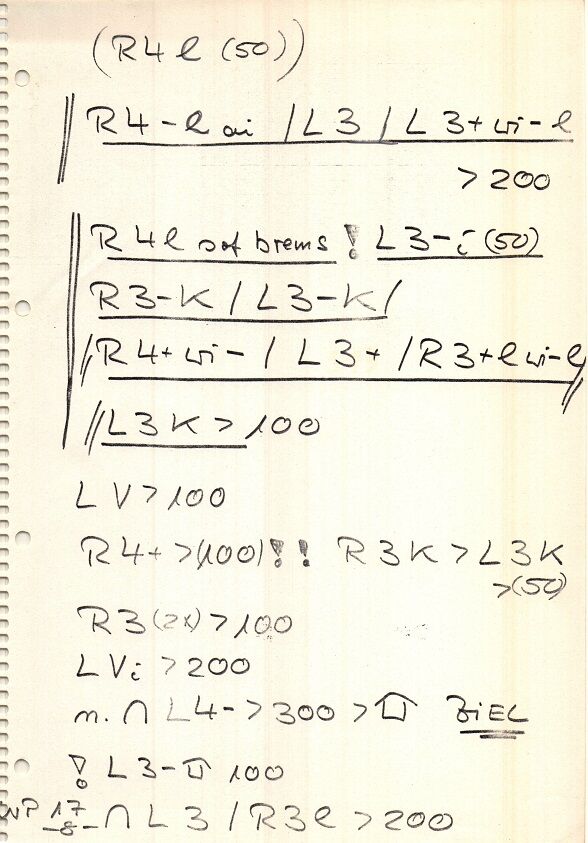 (R4 l (50))
R4-l ai /L3 / L3+ wi-l
>200
R4l sof brems ! L3-i (50)
R3-K / L3-K/
/R4+ wi- / L3+ /R3+l wi-l/
//L3K > 100
LV > 100
R4+ >(100)!! R3K > L3K
>(50)
R3 (2x) > 100
LVi > 200
m. ∩ L4- > 300 > ZiEL
! L3- 100
WP 17
-8- ∩ L3 / R3l > 200